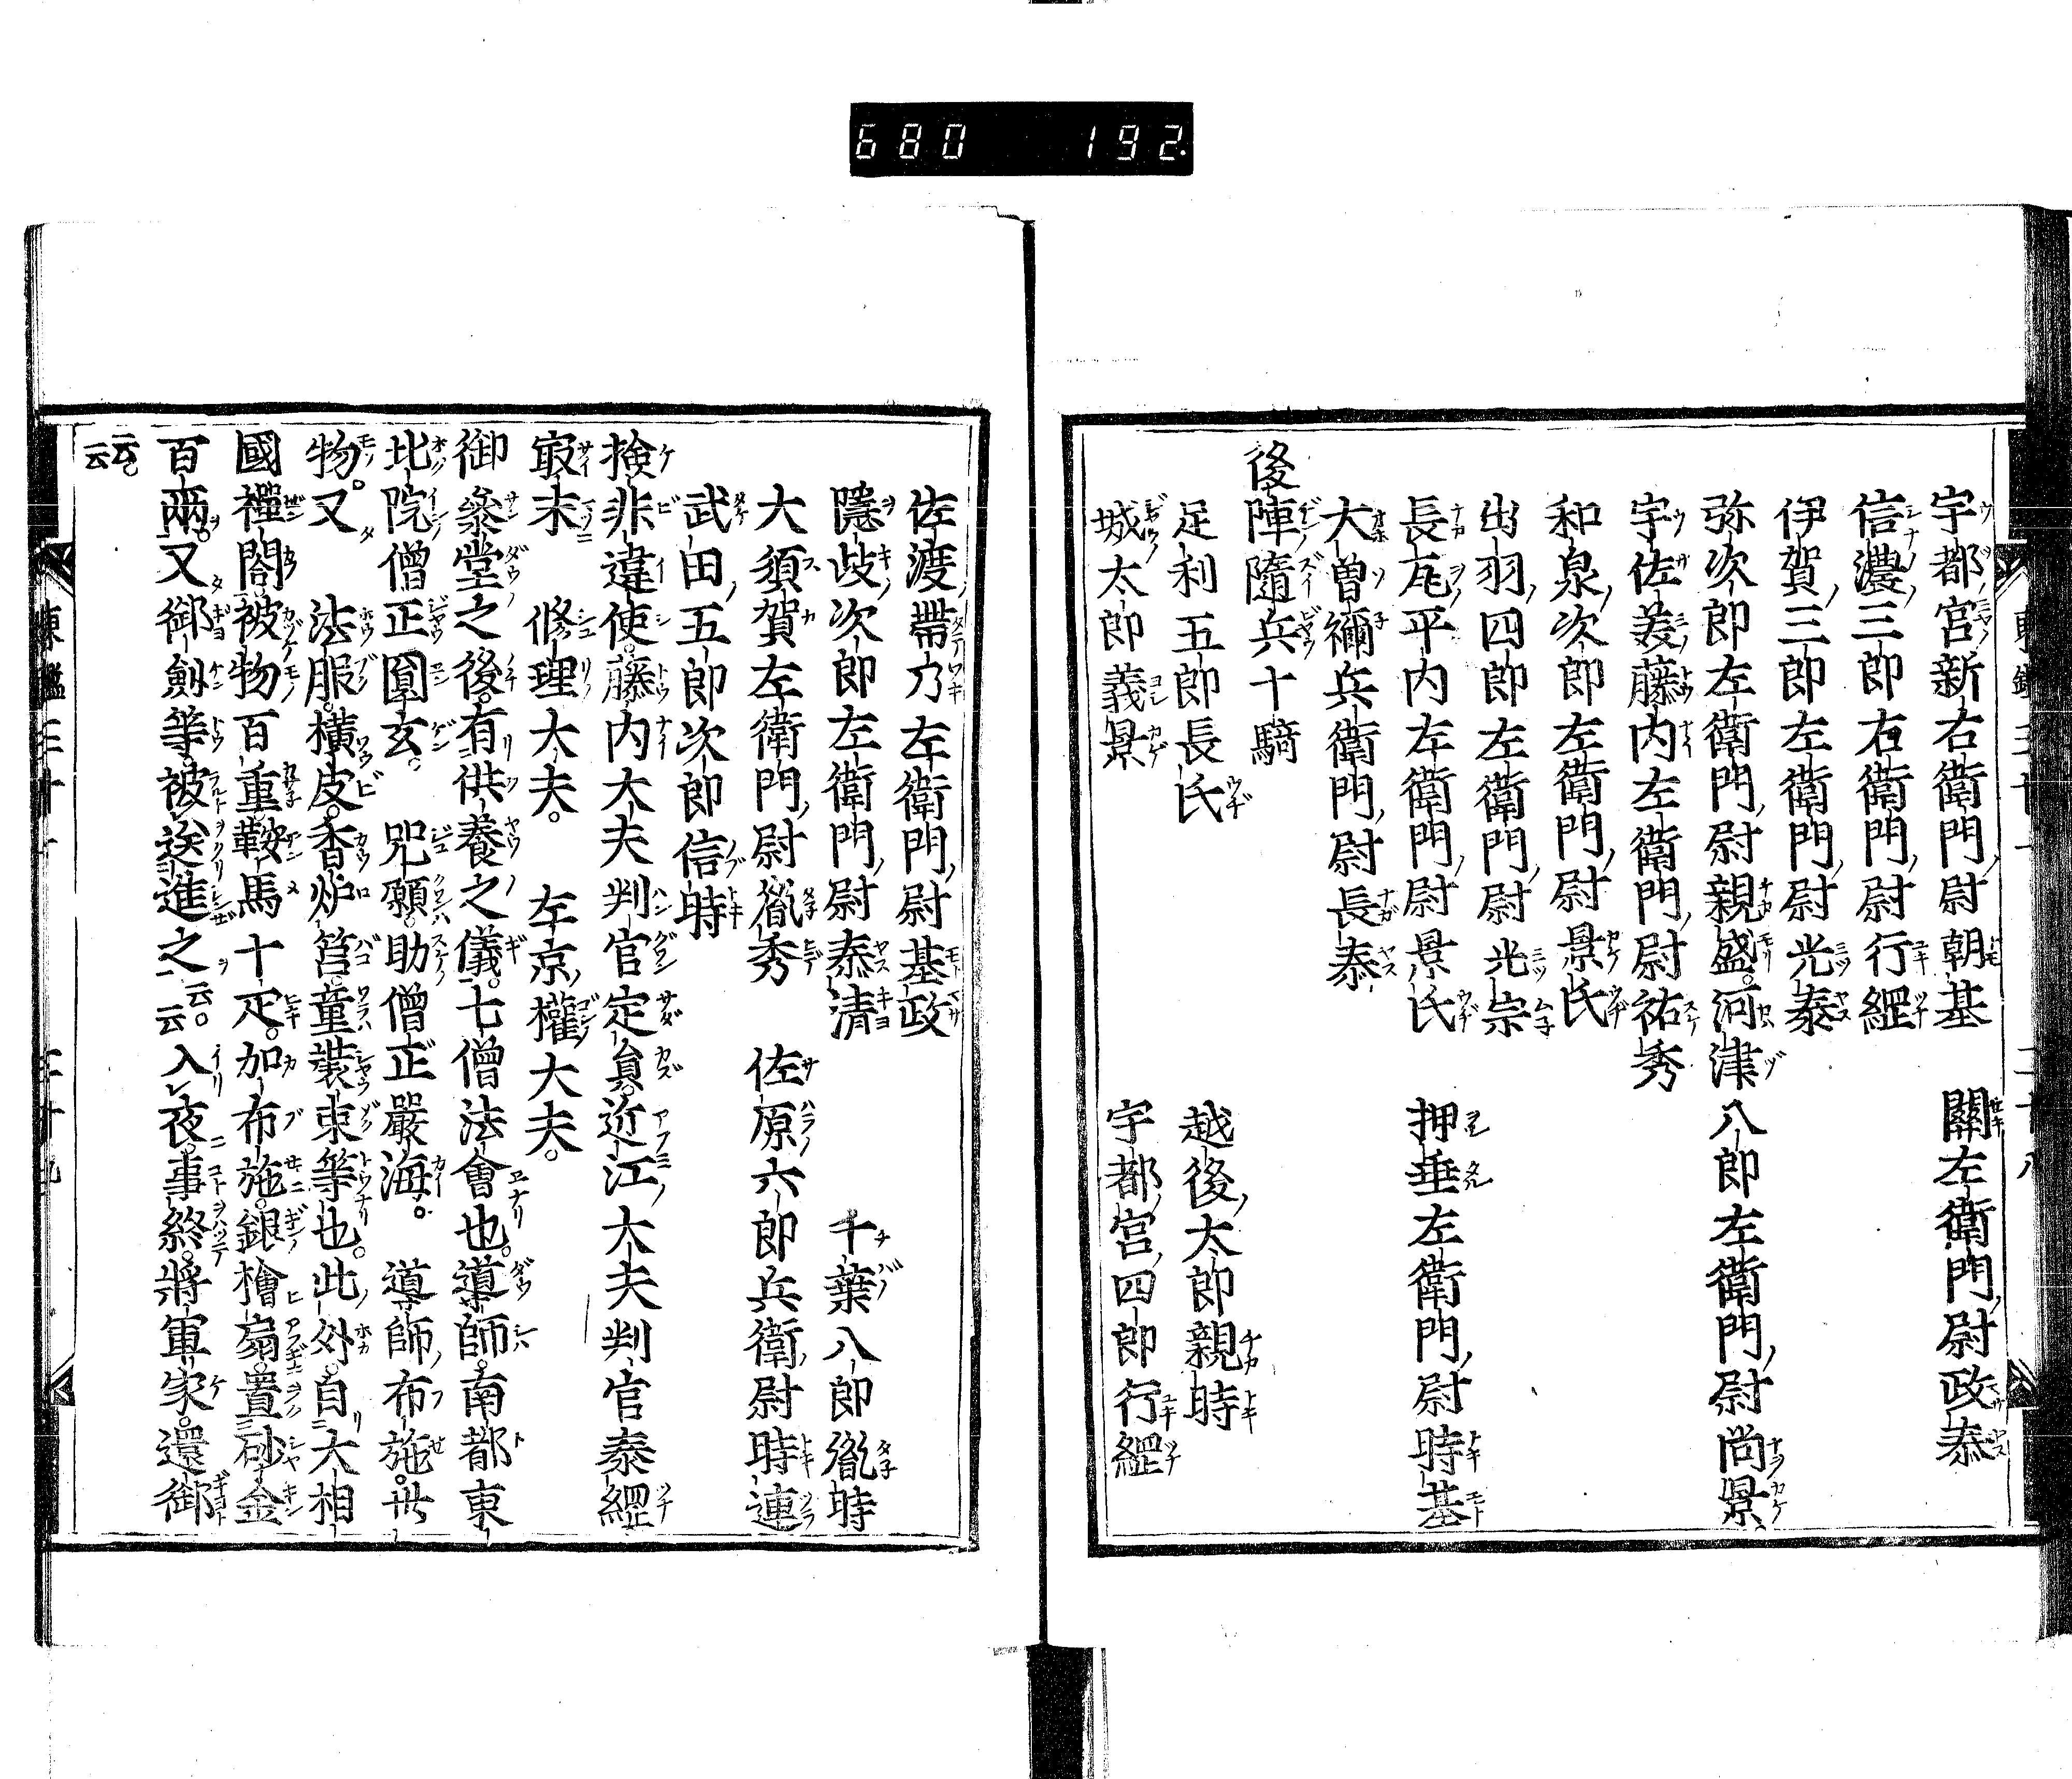 680 192.
宇都宮新右衛門尉朝基 關左衛門尉政泰
信濃三郎右衛門尉行綱
伊賀三郎左衛門尉光泰
弥次郎左衛門尉親盛。河津八郎左衛門尉尚景。
宇佐美藤内左衛門尉祐秀
和泉次郎左衛門尉景氏
出羽四郎左衛門尉光宗
長尾平内左衛門尉景氏 押垂左衛門尉時基
大曽禰兵衛門尉長泰
後陣隨兵十騎
足利五郎長氏 越後太郎親時
城太郎義景 宇都宮四郎行綱
佐渡帶刀左衛門尉基政
隱歧次郎左衛門尉泰清 千葉八郎胤時
大須賀左衛門尉胤秀 佐原六郎兵衛尉時連
武田五郎次郎信時
撿非違使。藤内大夫判官定員。近江大夫判官泰綱
冣末 修理大夫。 左京權大夫。
御參堂之後。有供養之儀。七僧法會也。導師。南都東
北院僧正圓玄。 咒願。助僧正嚴海。 導師布施。卅
物。又 法服。橫皮。香炉筥。童裝束等也。此外。自大相
國禪閤被物百重。鞍馬十疋。加布施。銀檜扇。置砂金
百兩。又御劍等。被送進之云云。入夜。事終。將軍家。還御
云云。